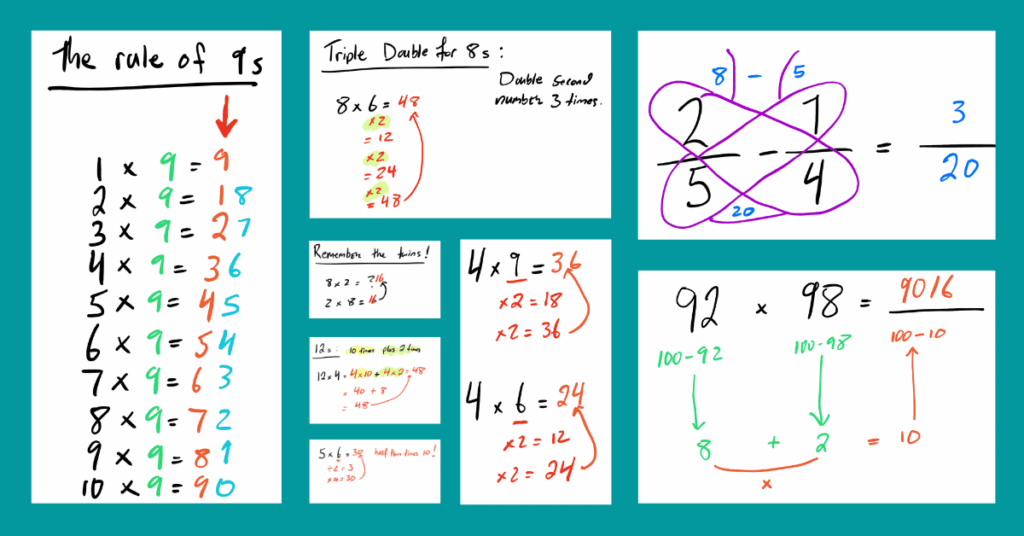 the rule of 9s
1 × 9 = 9
2 × 9 = 18
3 × 9 = 27
4 × 9 = 36
5 × 9 = 45
6 × 9 = 54
7 × 9 = 63
8 × 9 = 72
9 × 9 = 81
10 × 9 = 90
Triple Double for 8s:
Double second
number 3 times.
8 × 6 = 48
×2
= 12
×2
= 24
×2
= 48
Remember the twins!
8 × 2 = ?16
2 × 8 = 16
12s: 10 times plus 2 times
12 × 4 = 4×10 + 4×2 = 48
= 40 + 8
= 48
5 × 6 = 30 half then times 10!
÷2 = 3
×10 = 30
4 × 9 = 36
×2 = 18
×2 = 36
4 × 6 = 24
×2 = 12
×2 = 24
8 - 5
2/5 - 1/4 = 3/20
20
92 × 98 = 9016
100-92 100-98 100-10
8 + 2 = 10
×